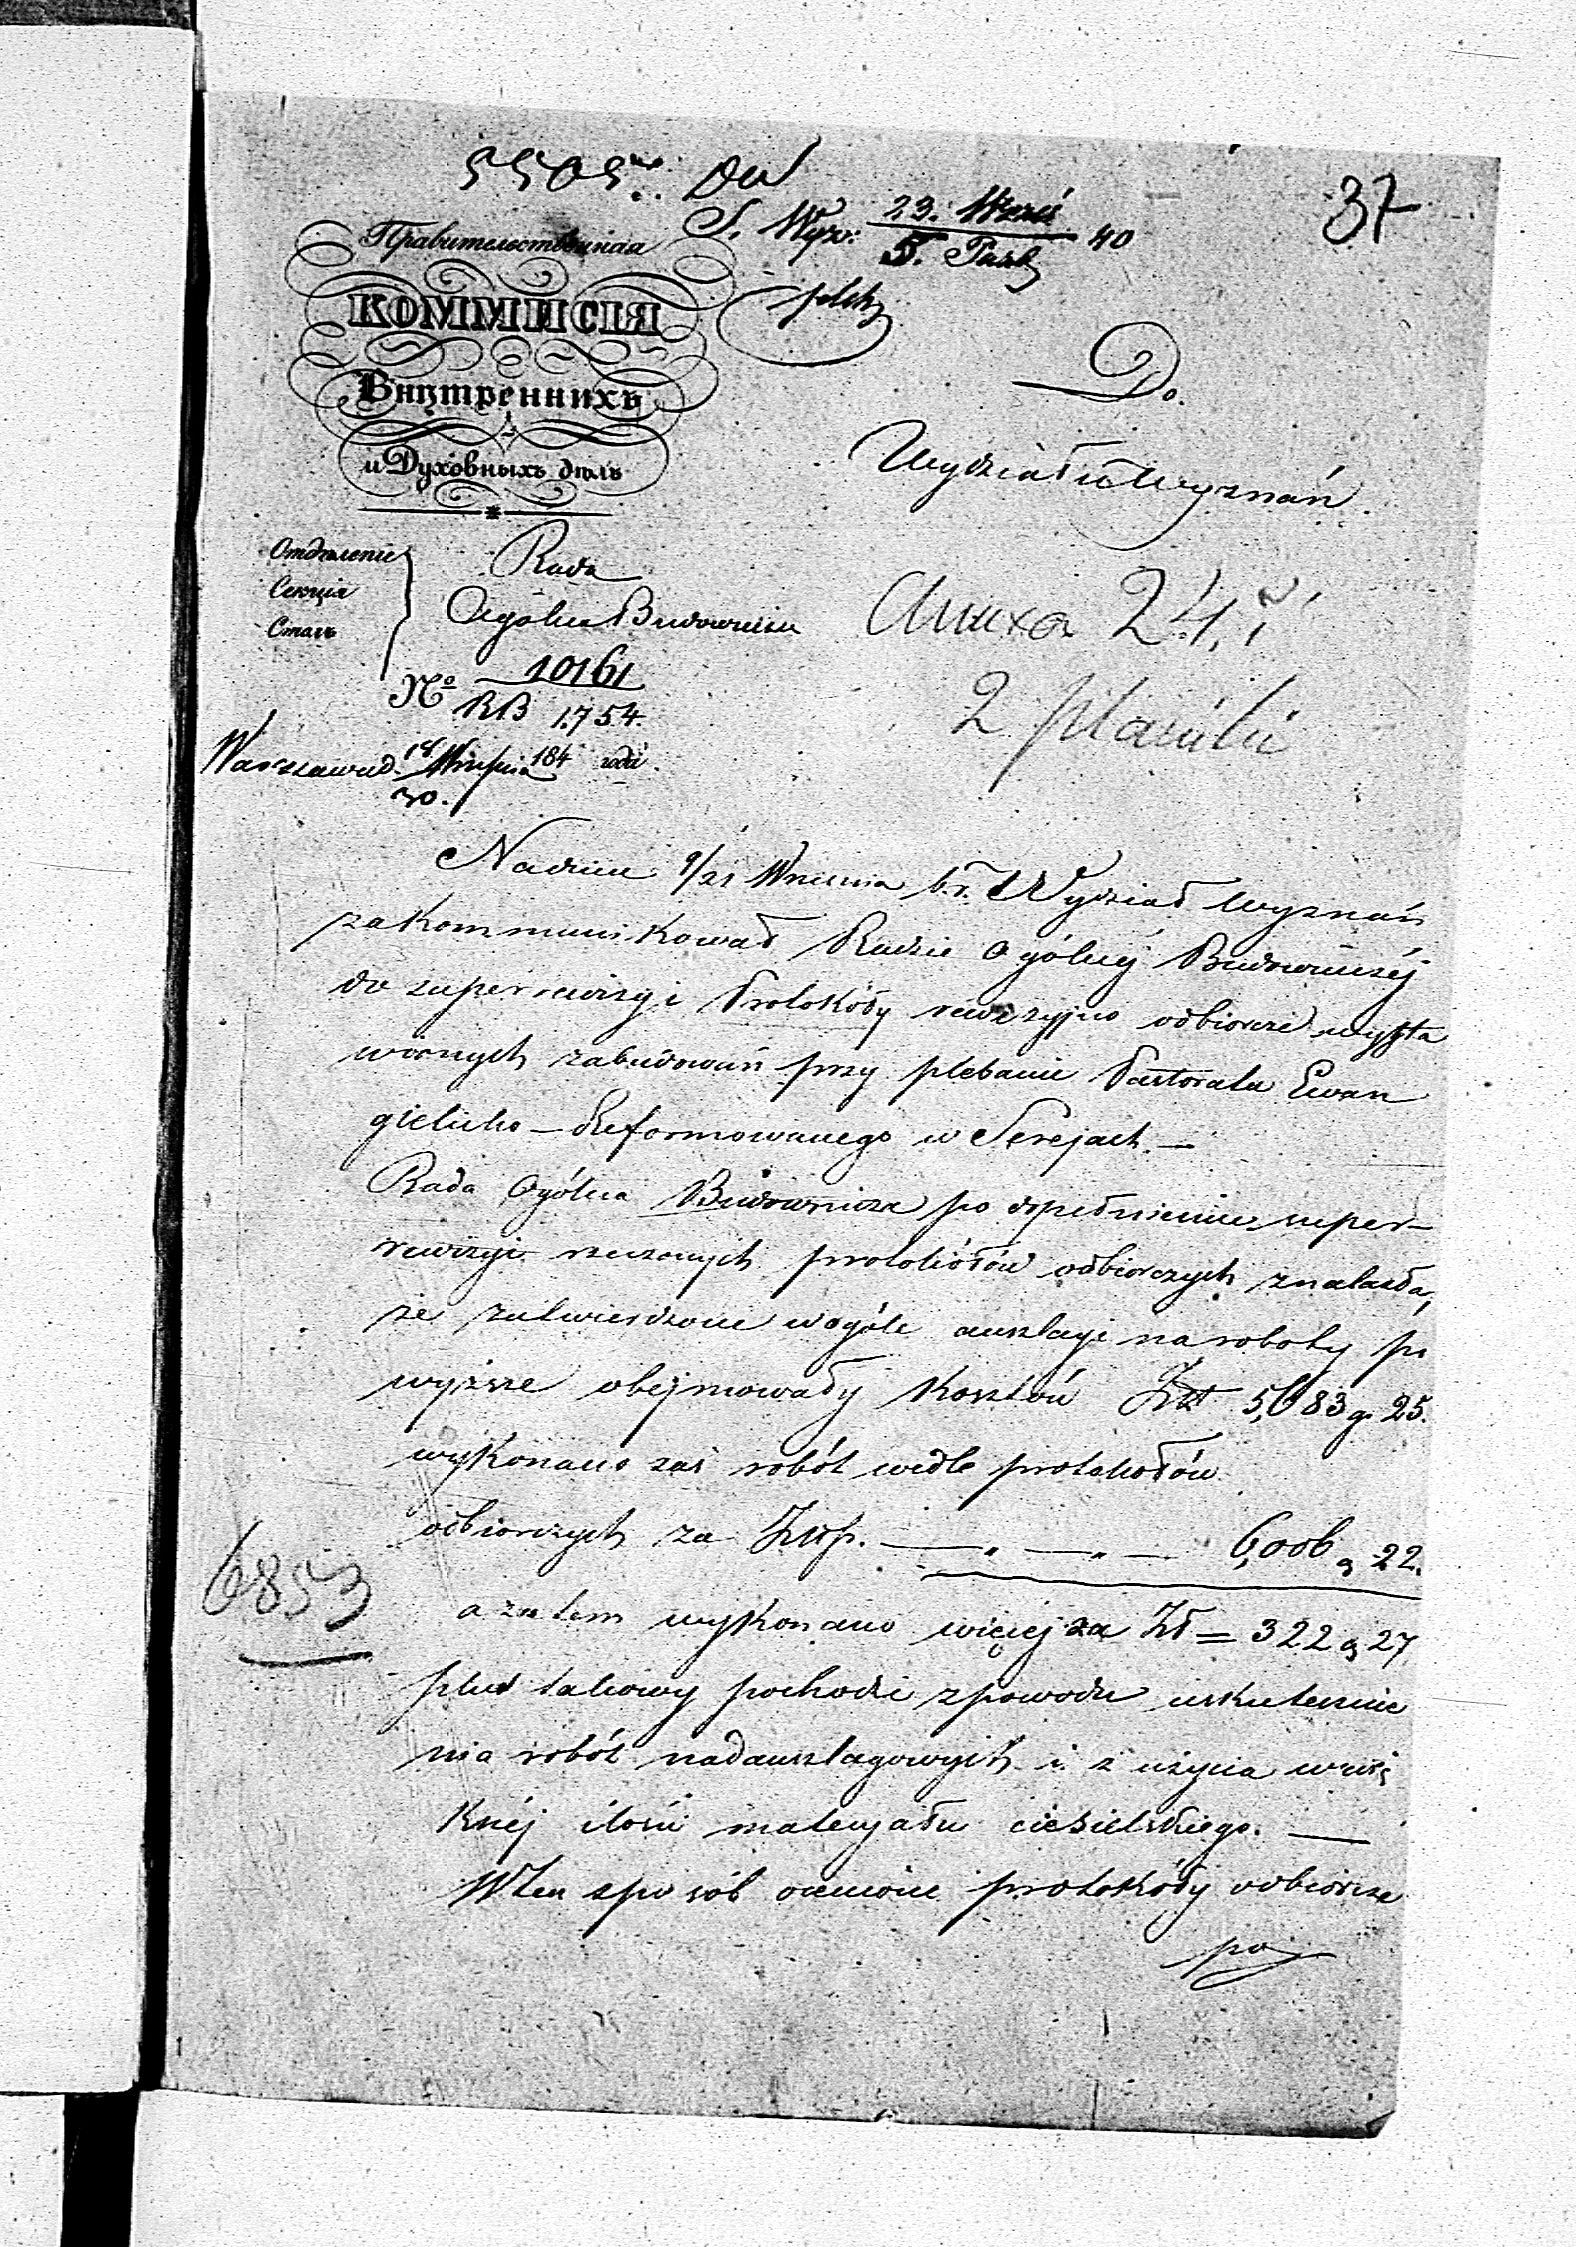 5505
37
S. Wyz: 23. Wrześ / 5. Paźd 40
Правительственная
КОММИСІЯ
Внутреннихъ
и Духовныхъ дѣлъ
Do.
Wydziału Wyznań
Отдѣленіе
Секція
Столъ
Rada
Ogólna Budownicza
24.
2 plany
№ 10161
RB 1754.
Warszawa d. 18/30. Września 184 года.
Na dniu 9/21 Września b.r. Wydział Wyznań
zakommunikował Radzie Ogólnéj Budowniczéj
do superrewizyi Protokóły rewizyjno odbiorcze wysta
wionych zabudowań przy plebanii Pastorata Ewan
gielicko-Reformowanego w Serejach. —
Rada Ogólna Budownicza po dopełnieniu super-
rewizyi rzeczonych protokółów odbiorczych znalazła,
że zatwierdzone wogóle anszlagi na roboty po
wyższe obejmowały kosztów Złt 5,683 g. 25.
wykonano zaś robót wedle protokółów
odbiorczych za Złtp. — „ — „ — 6,006 g 22.
6853
a zatem wykonano więcéj za Zł = 322 g 27
plus takowy pochodzi z powodu uskutecznie
nia robót nadanszlagowych i z użycia więk
széj ilości materyału ciesielskiego. —
W ten sposób ocenione protokóły odbiorcze
po